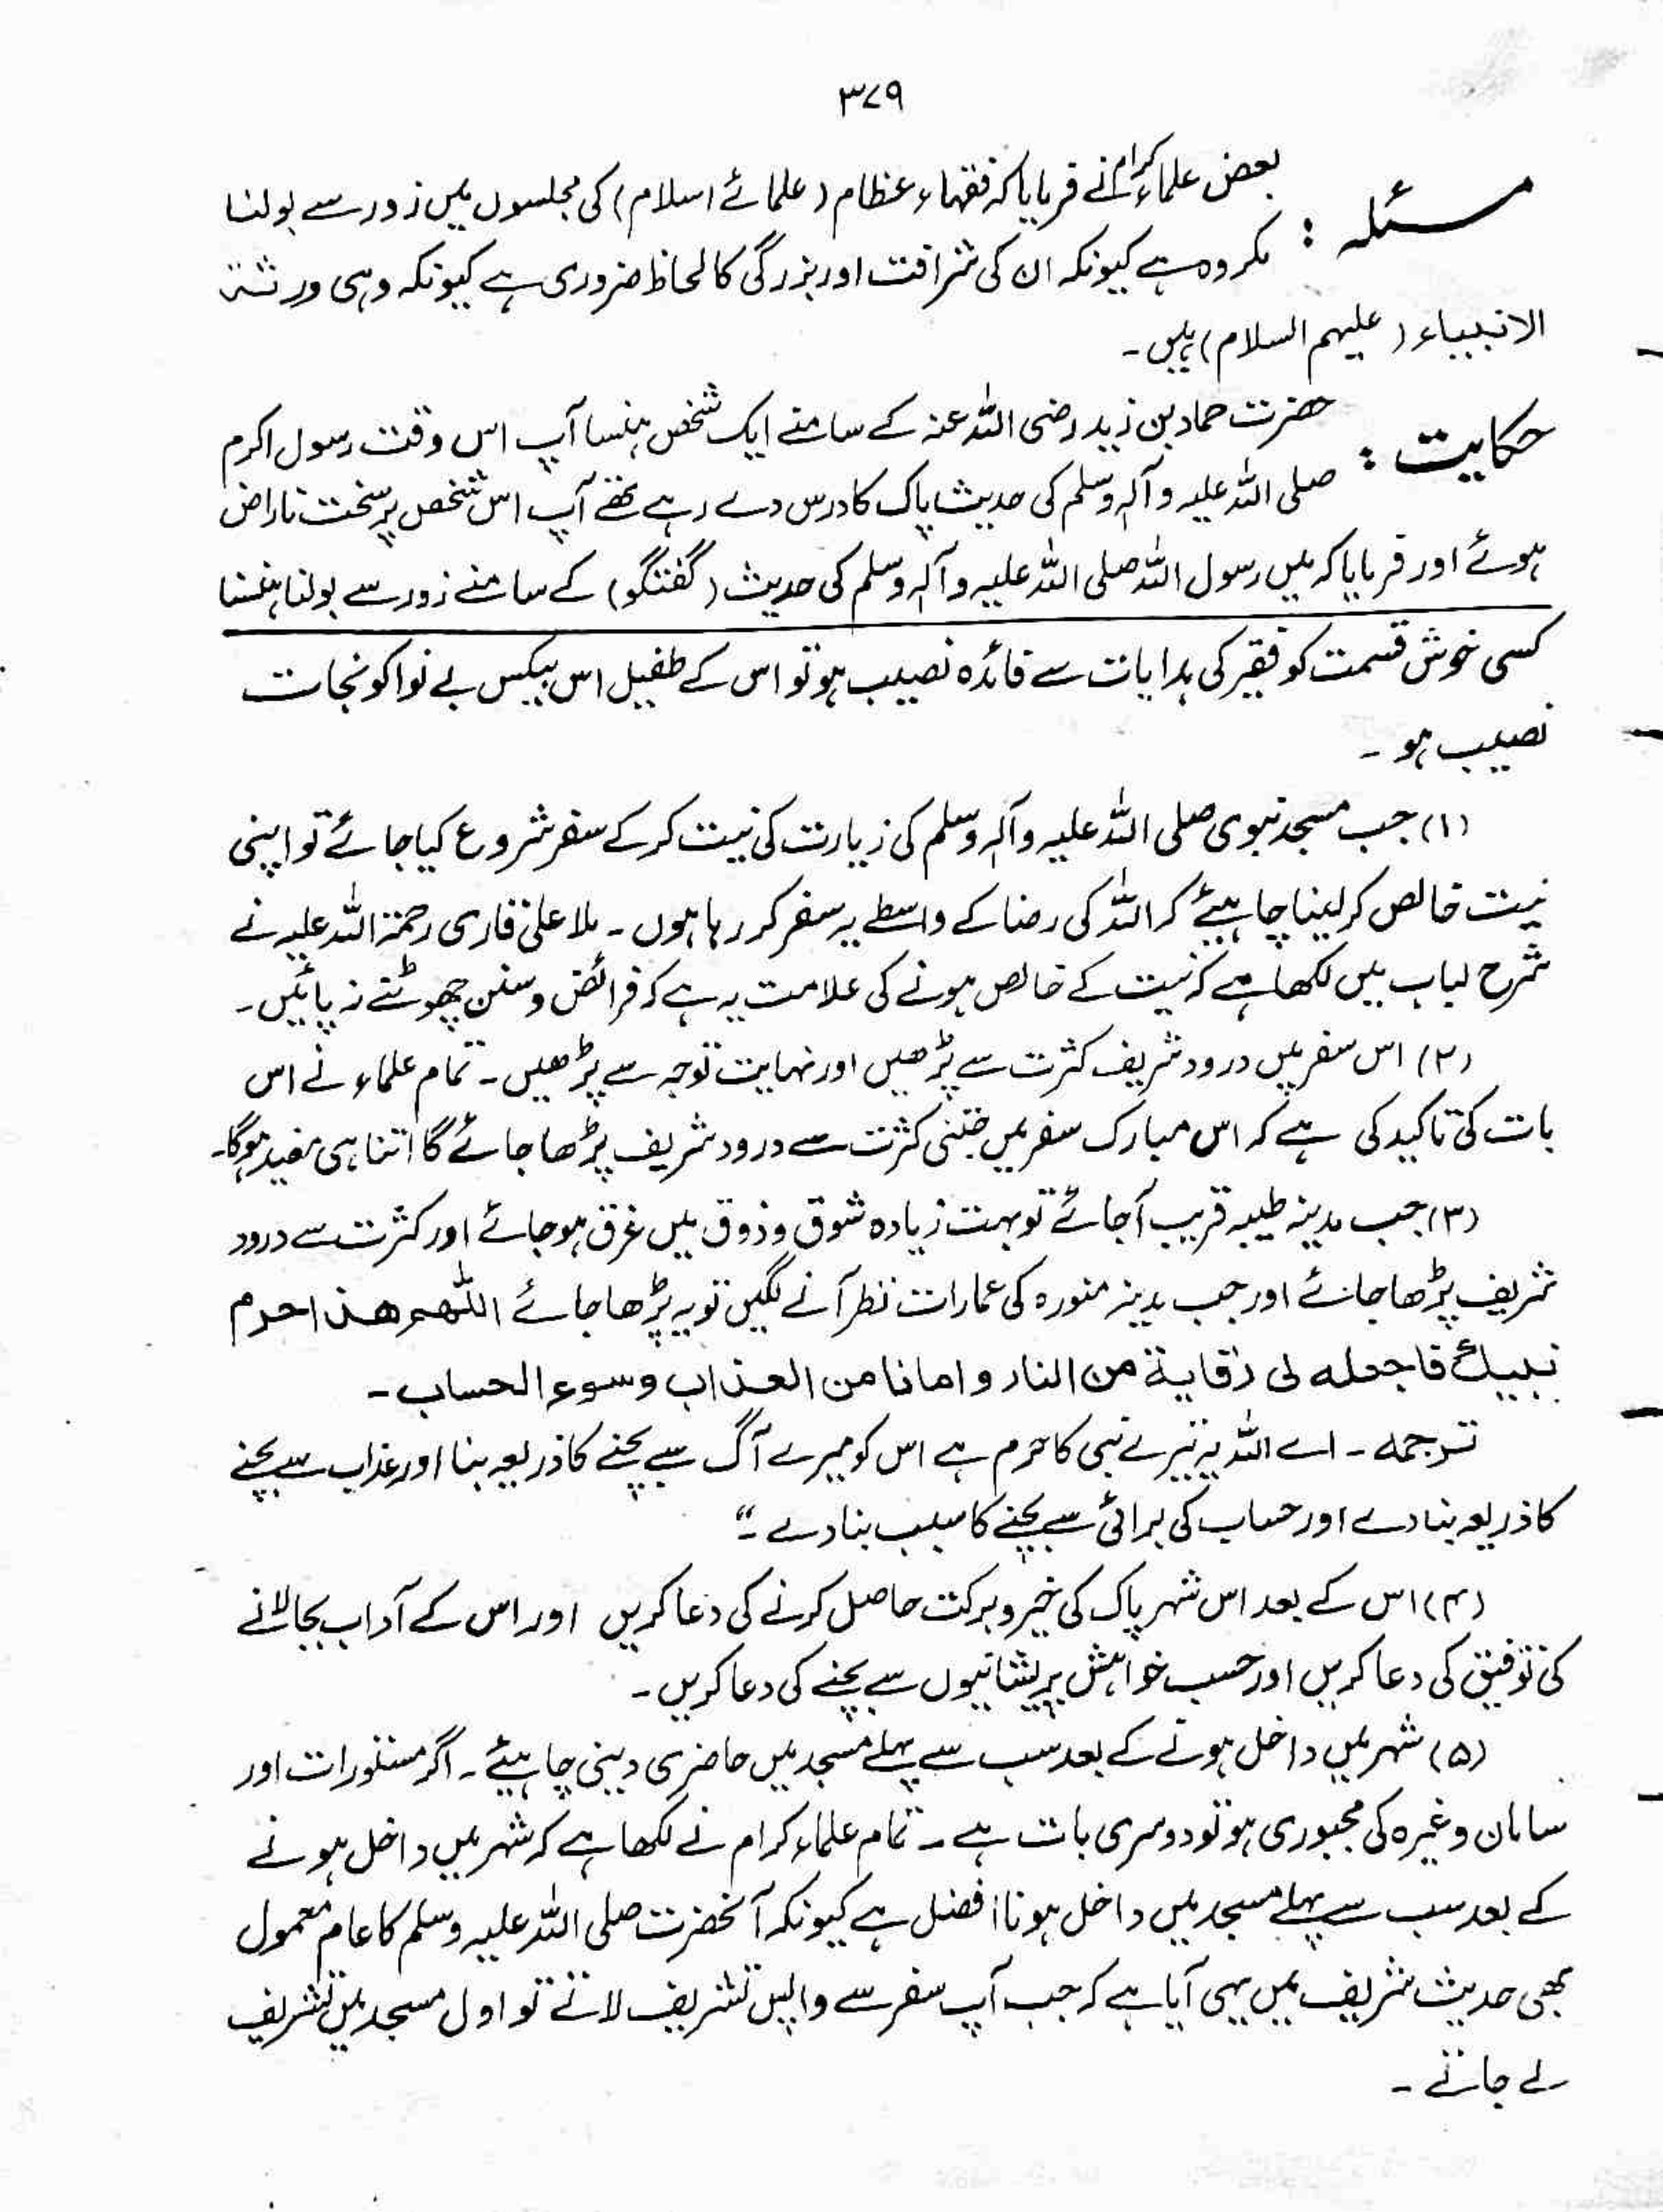 ۳۷۹
مسئلہ : بعض علماء کرام نے فرمایا کہ فقہاء عظام (علمائے اسلام) کی مجلسوں میں زور سے بولنا
مکروہ ہے کیونکہ ان کی شرافت اور بزرگی کا لحاظ ضروری ہے کیونکہ وہی ورثۃ
الانبیاء (علیہم السلام) ہیں۔
حکایت : حضرت حماد بن زید رضی اللہ عنہ کے سامنے ایک شخص ہنسا آپ اس وقت رسول اکرم
صلی اللہ علیہ وآلہٖ وسلم کی حدیث پاک کا درس دے رہے تھے آپ اس شخص پر سخت ناراض
ہوئے اور فرمایا کہ میں رسول اللہ صلی اللہ علیہ وآلہٖ وسلم کی حدیث (گفتگو) کے سامنے زور سے بولنا ہنسنا
کسی خوش قسمت کو فقیر کی ہدایات سے فائدہ نصیب ہو تو اس کے طفیل اس بیکس بے نوا کو نجات
نصیب ہو ۔
(۱) جب مسجد نبوی صلی اللہ علیہ وآلہٖ وسلم کی زیارت کی نیت کر کے سفر شروع کیا جائے تو اپنی
نیت خالص کر لینا چاہیئے کہ اللہ کی رضا کے واسطے یہ سفر کر رہا ہوں ۔ ملا علی قاری رحمۃ اللہ علیہ نے
شرح لباب میں لکھا ہے کہ نیت کے خالص ہونے کی علامت یہ ہے کہ فرائض و سنن چھوٹنے نہ پائیں۔
(۲) اس سفر میں درود شریف کثرت سے پڑھیں اور نہایت توجہ سے پڑھیں۔ تمام علماء نے اس
بات کی تاکید کی ہے کہ اس مبارک سفر میں جتنی کثرت سے درود شریف پڑھا جائے گا اتنا ہی مفید ہوگا۔
(۳) جب مدینہ طیبہ قریب آجائے تو بہت زیادہ شوق و ذوق میں غرق ہو جائے اور کثرت سے درود
شریف پڑھا جائے اور جب مدینہ منورہ کی عمارات نظر آنے لگیں تو یہ پڑھا جائے اللّٰھم ھذا حرم
نبیک فاجعلہ لی وقایة من النار و امانا من العذاب وسوء الحساب۔
ترجمہ ۔ اے اللہ یہ تیرے نبی کا حرم ہے اس کو میرے آگ سے بچنے کا ذریعہ بنا اور عذاب سے بچنے
کا ذریعہ بنا دے اور حساب کی برائی سے بچنے کا سبب بنا دے ۔“
(۴) اس کے بعد اس شہر پاک کی خیر و برکت حاصل کرنے کی دعا کریں اور اس کے آداب بجا لانے
کی توفیق کی دعا کریں اور حسب خواہش پریشانیوں سے بچنے کی دعا کریں ۔
(۵) شہر میں داخل ہونے کے بعد سب سے پہلے مسجد میں حاضری دینی چاہیئے ۔ اگر مستورات اور
سامان وغیرہ کی مجبوری ہو تو دوسری بات ہے ۔ تمام علماء کرام نے لکھا ہے کہ شہر میں داخل ہونے
کے بعد سب سے پہلے مسجد میں داخل ہونا افضل ہے کیونکہ آنحضرت صلی اللہ علیہ وسلم کا عام معمول
بھی حدیث شریف میں یہی آیا ہے کہ جب آپ سفر سے واپس تشریف لاتے تو اول مسجد میں تشریف
لے جاتے ۔